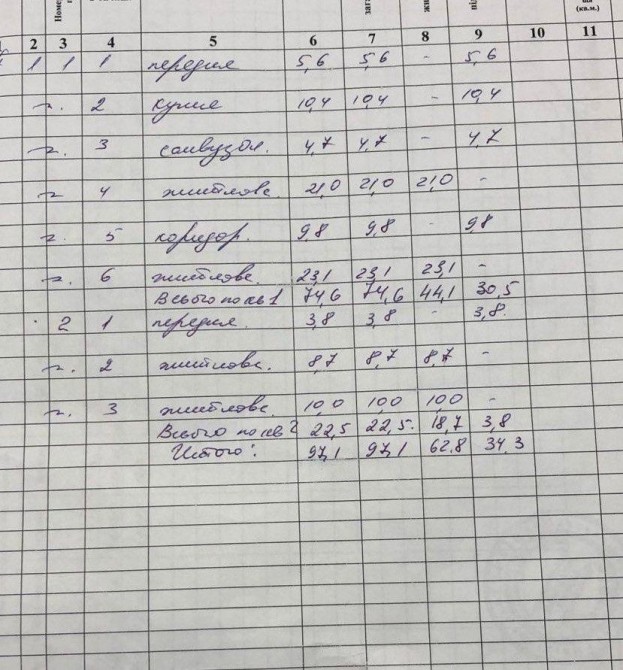 Номе
заг
жи
під
(кв.м.)
2 3 4 5 6 7 8 9 10 11
1 1 1 передня 5,6 5,6 - 5,6
п. 2 кухня 10,4 10,4 - 10,4
п. 3 санвузол. 4,7 4,7 - 4,7
п. 4 житлова. 21,0 21,0 21,0 -
п. 5 коридор. 9,8 9,8 - 9,8
п. 6 житлова. 23,1 23,1 23,1 -
Всього по кв 1 74,6 74,6 44,1 30,5
2 1 передня. 3,8 3,8 - 3,8.
п. 2 житлова. 8,7 8,7 8,7 -
п. 3 житлова. 10,0 10,0 10,0 -
Всього по кв 2 22,5 22,5. 18,7 3,8
Итого: 97,1 97,1 62.8 34.3